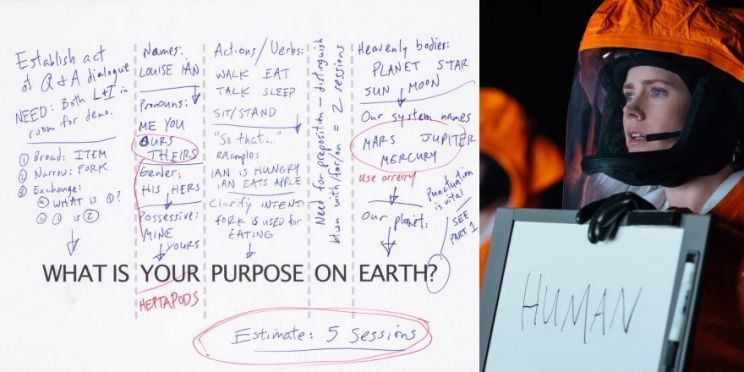 Establish act
of Q+A dialogue
NEED: Both L+I in
room for demo.
① Broad: ITEM
② Narrow: FORK
③ Exchange:
④ WHAT IS ①?
⑤ ① IS ②
Names:
LOUISE IAN
Pronouns:
ME YOU
OURS
THEIRS
Gender:
HIS HERS
Possessive:
MINE
YOURS
Actions/Verbs:
WALK EAT
TALK SLEEP
SIT/STAND
"So that..."
examples
IAN IS HUNGRY
IAN EATS APPLE
Clarify INTENT:
FORK IS USED for
EATING
Need for preposition — distinguish
btwn with/for/on = 2 sessions
Heavenly bodies:
PLANET STAR
SUN MOON
Our system names
MARS JUPITER
MERCURY
use orrery
Our planet:
Punctuation
is vital
SEE
PART 1
WHAT IS YOUR PURPOSE ON EARTH?
HEPTAPODS
Estimate: 5 Sessions
HUMAN